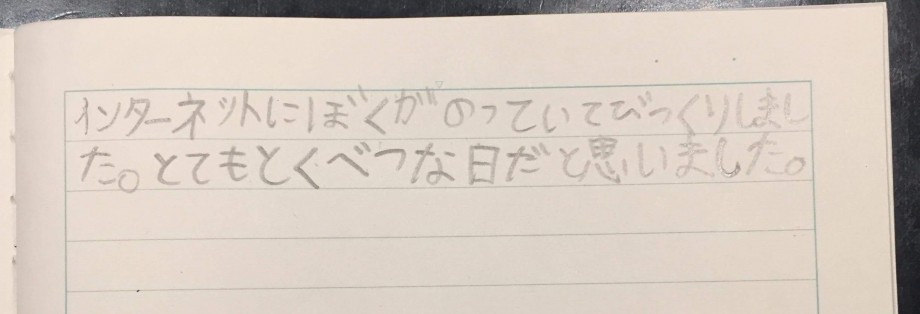 インターネットにぼくがのっていてびっくりしまし
た。とてもとくべつな日だと思いました。